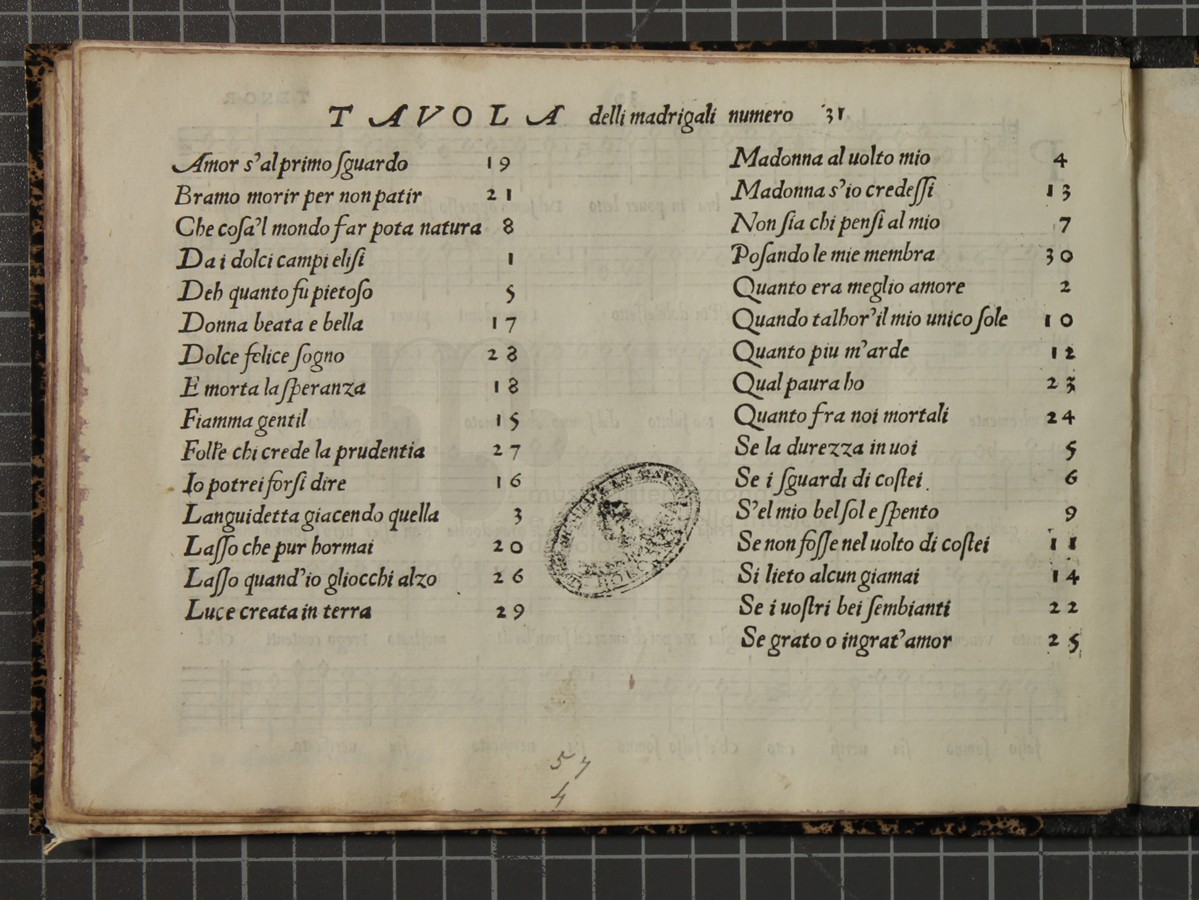 TAVOLA delli madrigali numero 31
Amor s'al primo ſguardo 19
Bramo morir per non patir 21
Che coſa'l mondo far pota natura 8
Da i dolci campi eliſi 1
Deh quanto fu pietoſo 5
Donna beata e bella 17
Dolce felice ſogno 28
E morta la ſperanza 18
Fiamma gentil 15
Foll'e chi crede la prudentia 27
Io potrei forſi dire 16
Languidetta giacendo quella 3
Laſſo che pur hormai 20
Laſſo quand'io gliocchi alzo 26
Luce creata in terra 29
Madonna al uolto mio 4
Madonna s'io credeſſi 13
Non ſia chi penſi al mio 7
Poſando le mie membra 30
Quanto era meglio amore 2
Quando talhor'il mio unico ſole 10
Quanto piu m'arde 12
Qual paura ho 23
Quanto fra noi mortali 24
Se la durezza in uoi 5
Se i ſguardi di coſtei 6
S'el mio bel ſol e ſpento 9
Se non foſſe nel uolto di coſtei 11
Si lieto alcun giamai 14
Se i uoſtri bei ſembianti 22
Se grato o ingrat'amor 25
57
4